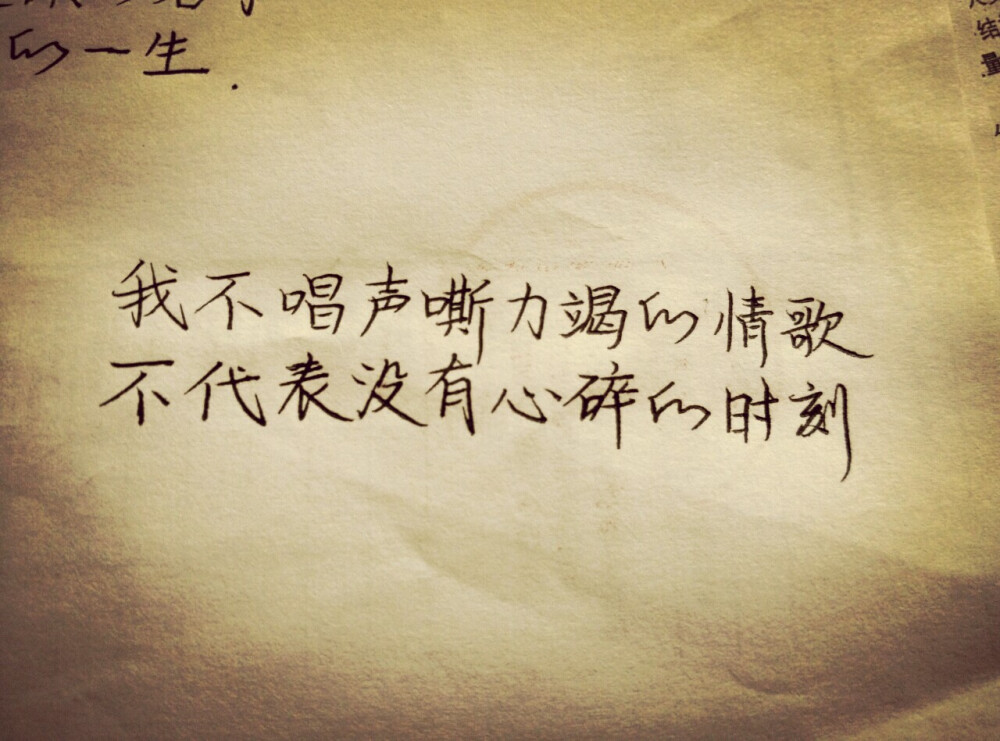 的一生.
我不唱声嘶力竭的情歌
不代表没有心碎的时刻
量